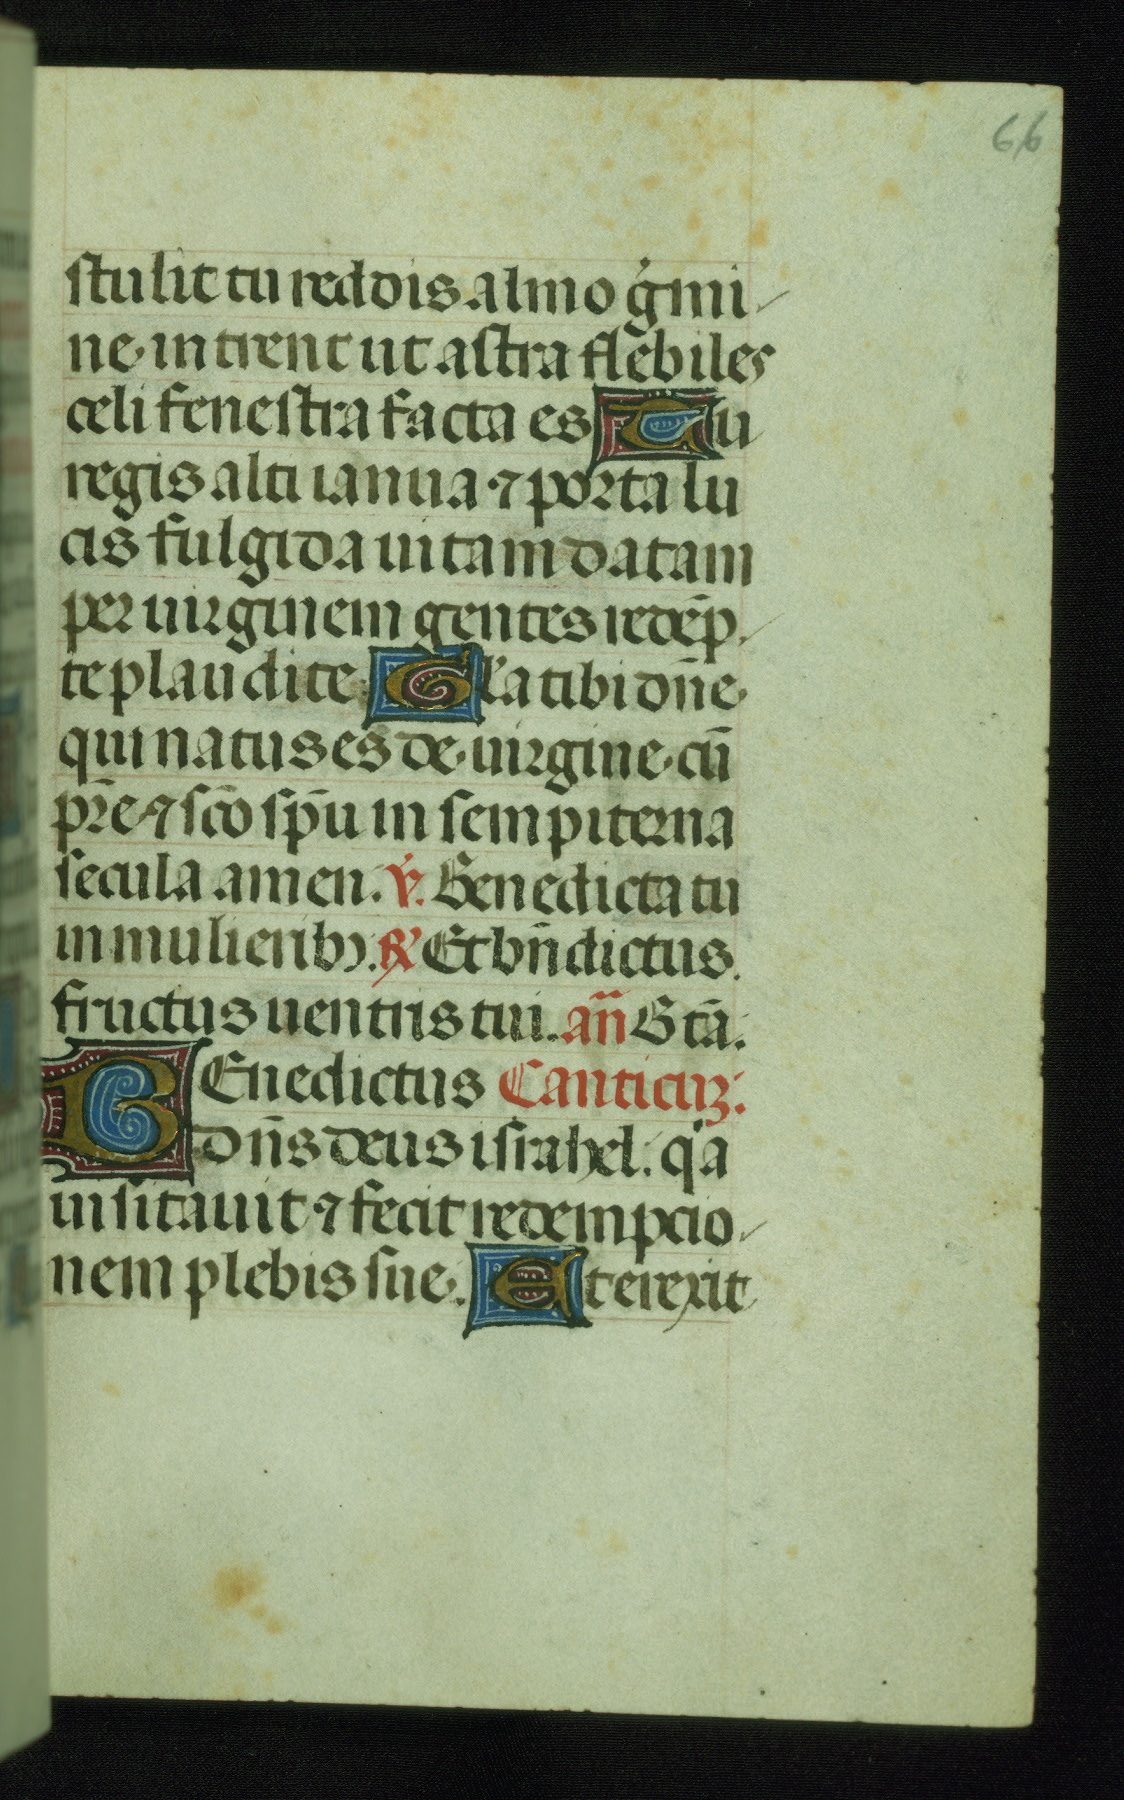 66
stulit tu reddis almo g̾mi
ne intrent ut astra flebiles
celi fenestra facta es Tu
regis alti ianua ⁊ porta lu
cis fulgida uitam datam
per uirginem gentes redēp
te plaudite Gl'a tibi dn̄e
qui natus es de uirgine cū
pr̄e ⁊ sc̄o sp̄u in sempiterna
secula amen. V̾. Benedicta tu
in mulieribꝫ. ℟ Et bn̄dictus
fructus uentris tui. an̄ Btā.
BEnedictus Canticuꝫ.
dn̄s deus israhel. qͥa
uisitauit ⁊ fecit redempcio
nem plebis sue. Et erexit